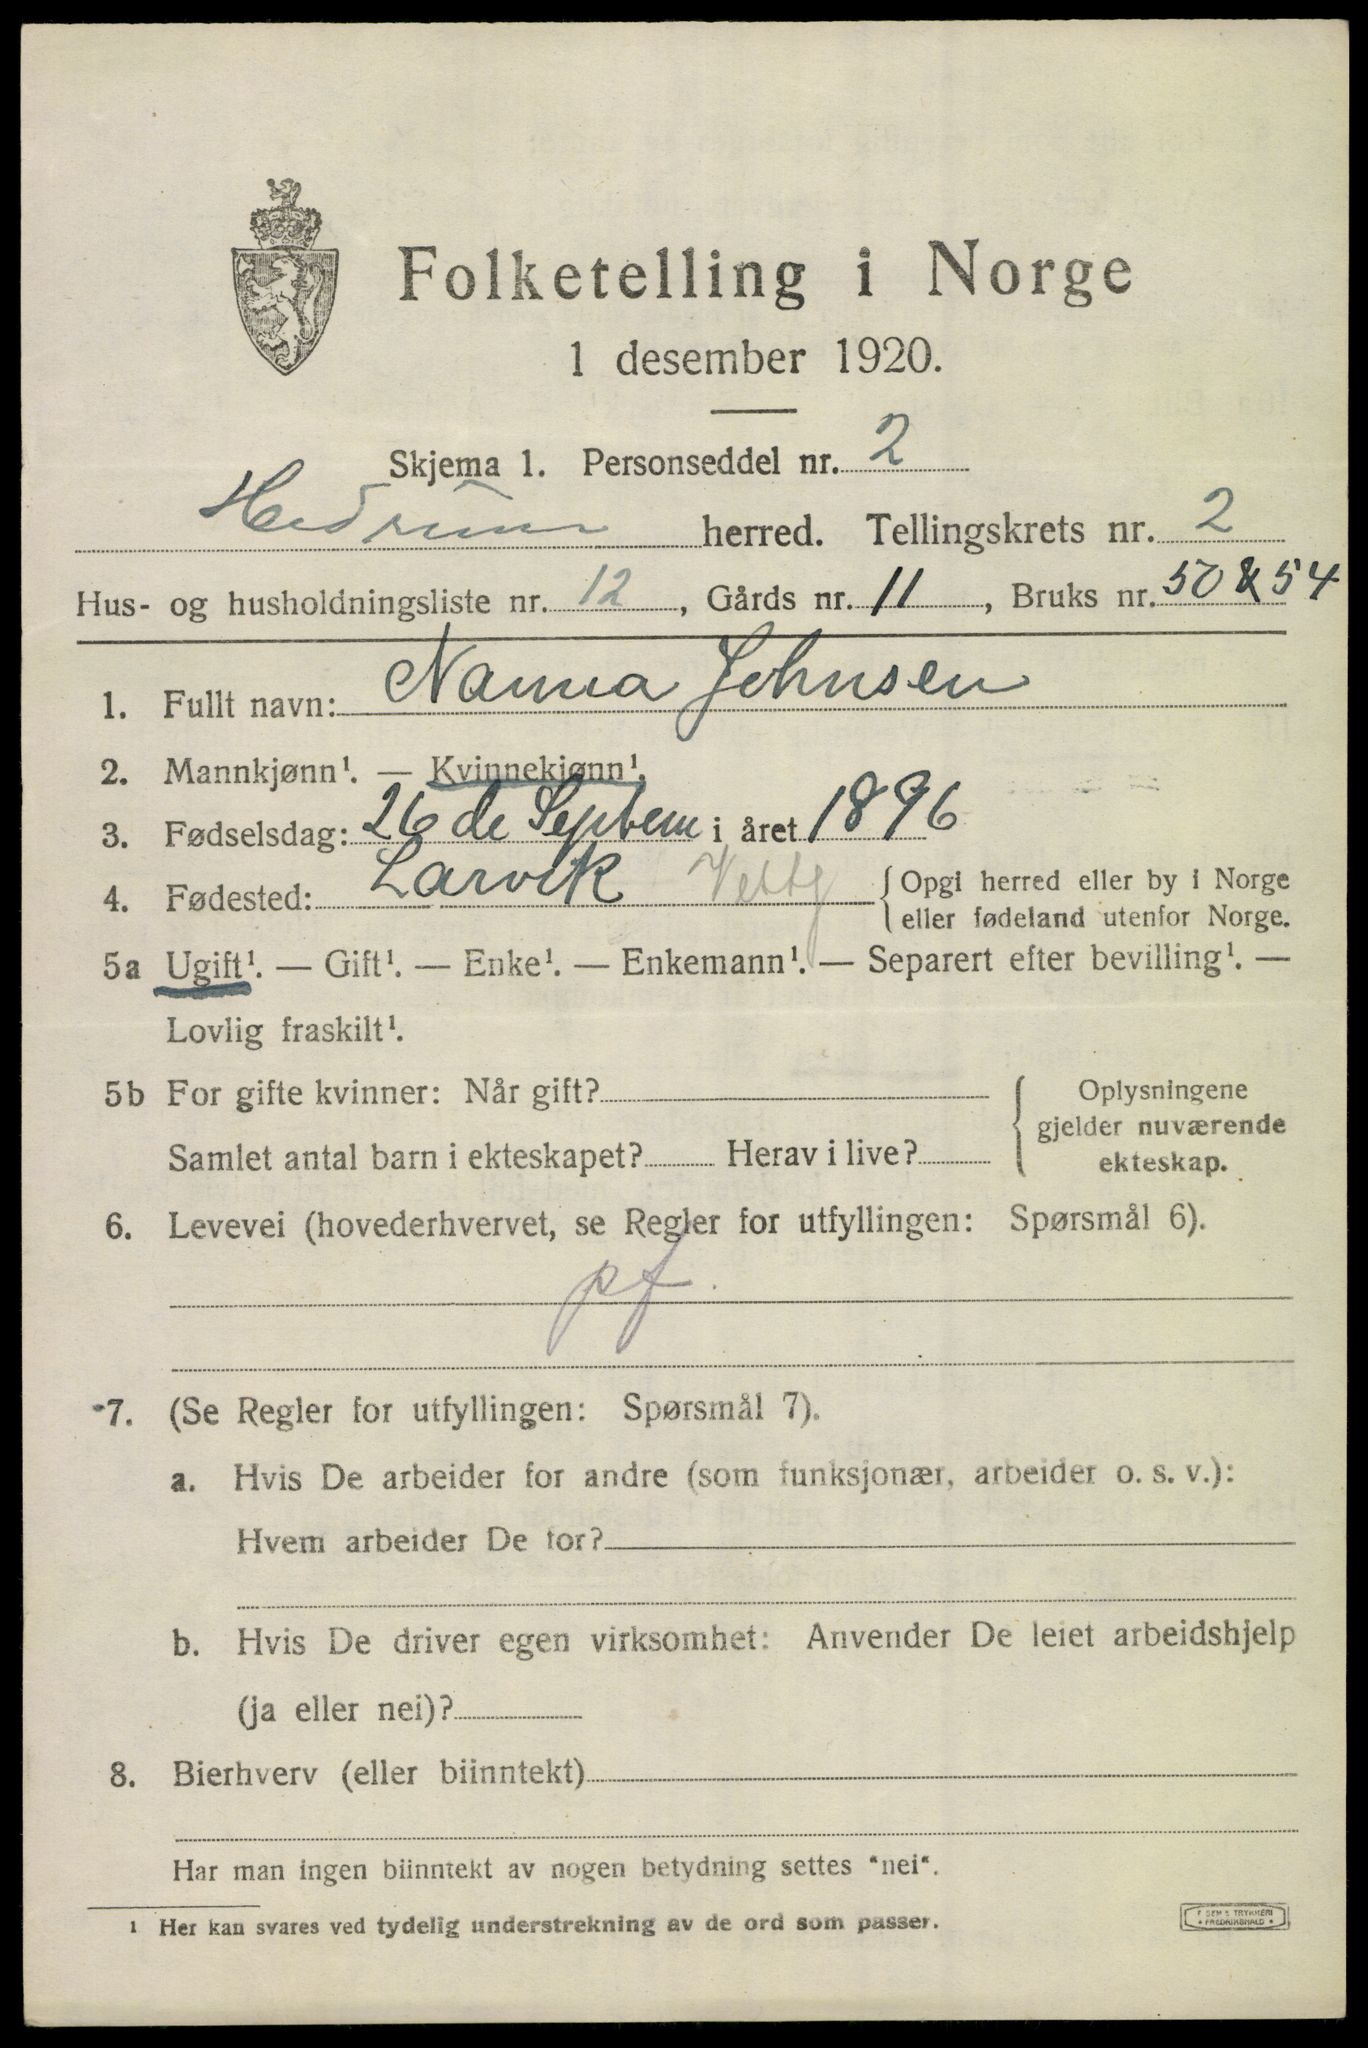 Folketelling i Norge
1 desember 1920.
Skjema 1. Personseddel nr. 2
Hedrum herred. Tellingskrets nr. 2
Hus- og husholdningsliste nr. 12, Gårds nr. 11, Bruks nr. 50 & 54
1. Fullt navn: Nanna Johnsen
2. Mannkjønn¹. — Kvinnekjønn¹.
3. Fødselsdag: 26 de Septem i året 1896
4. Fødested: Larvik { Opgi herred eller by i Norge
eller fødeland utenfor Norge.
5a Ugift¹. — Gift¹. — Enke¹. — Enkemann¹. — Separert efter bevilling¹. —
Lovlig fraskilt¹.
5b For gifte kvinner: Når gift? { Oplysningene
gjelder nuværende
Samlet antal barn i ekteskapet? Herav i live? ekteskap.
6. Levevei (hovederhvervet, se Regler for utfyllingen: Spørsmål 6).
pf.
7. (Se Regler for utfyllingen: Spørsmål 7).
a. Hvis De arbeider for andre (som funksjonær, arbeider o. s. v.):
Hvem arbeider De for?
b. Hvis De driver egen virksomhet: Anvender De leiet arbeidshjelp
(ja eller nei)?
8. Bierhverv (eller biinntekt)
Har man ingen biinntekt av nogen betydning settes "nei".
¹ Her kan svares ved tydelig understrekning av de ord som passer.
TRYKKERI
FREDRIKSHALD